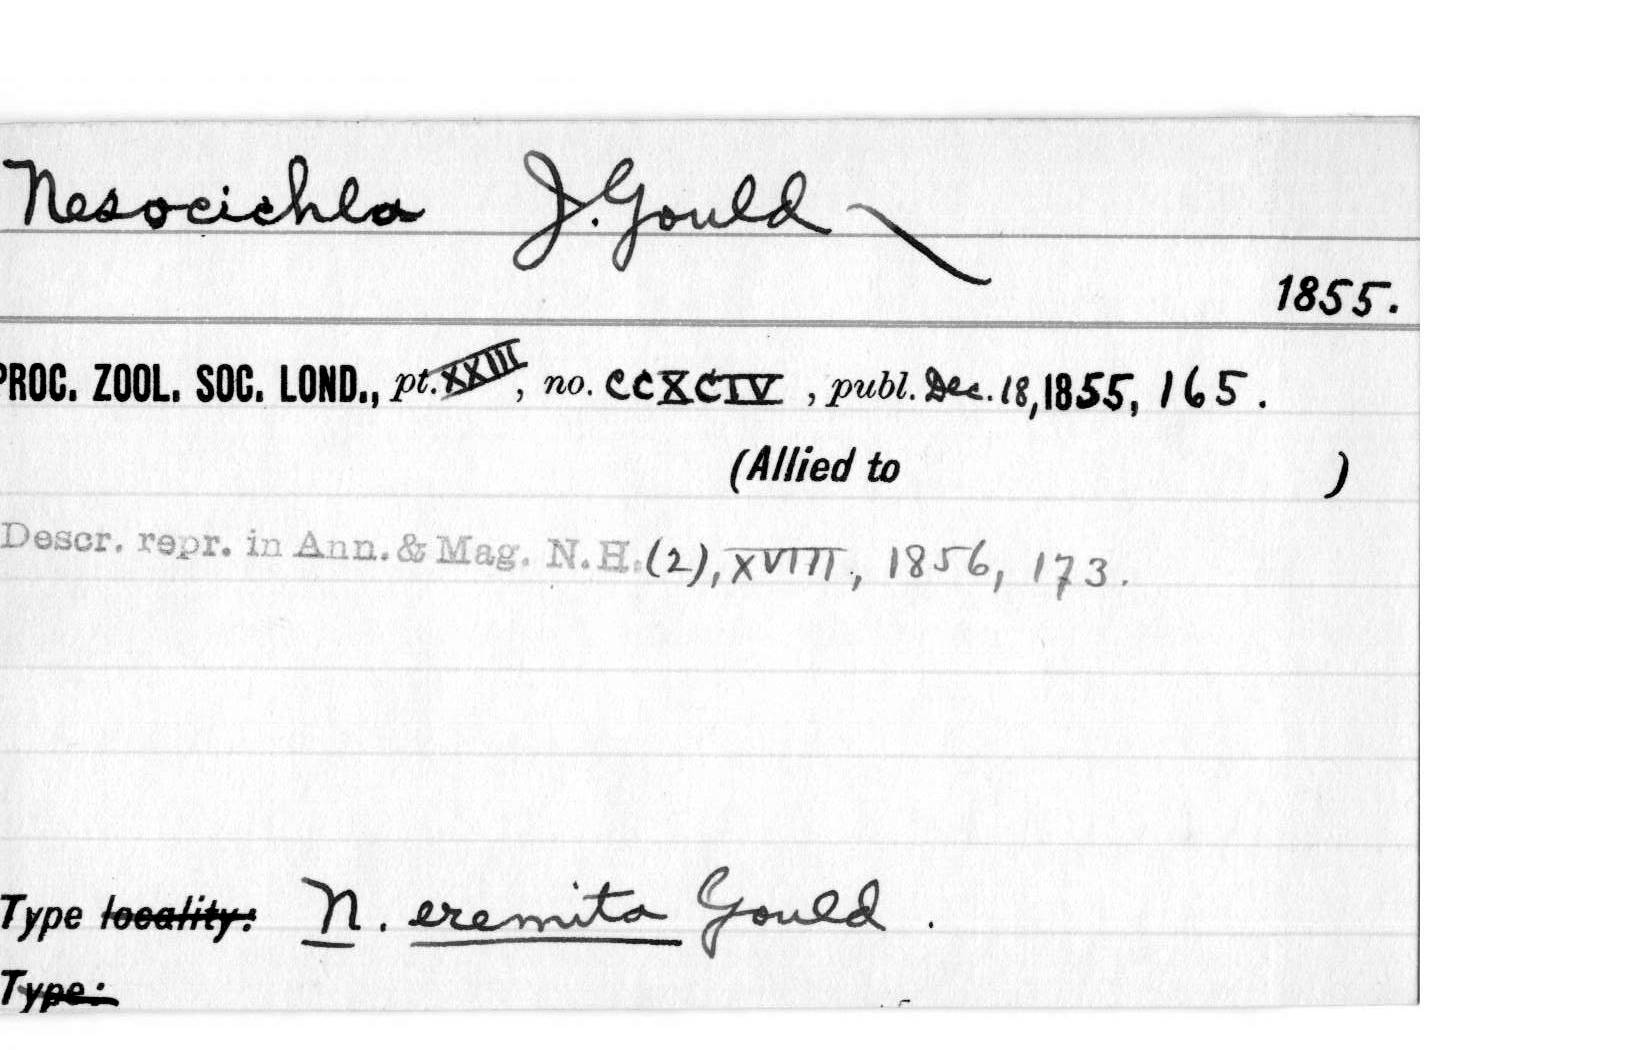 Nesocichla J. Gould
1855.
PROC. ZOOL. SOC. LOND., pt. XXIII, no. CCXCIV, publ. Dec. 18, 1855, 165.
(Allied to )
Descr. repr. in Ann. & Mag. N.H. (2), XVIII, 1856, 173.
Type locality: N. eremita Gould.
Type: